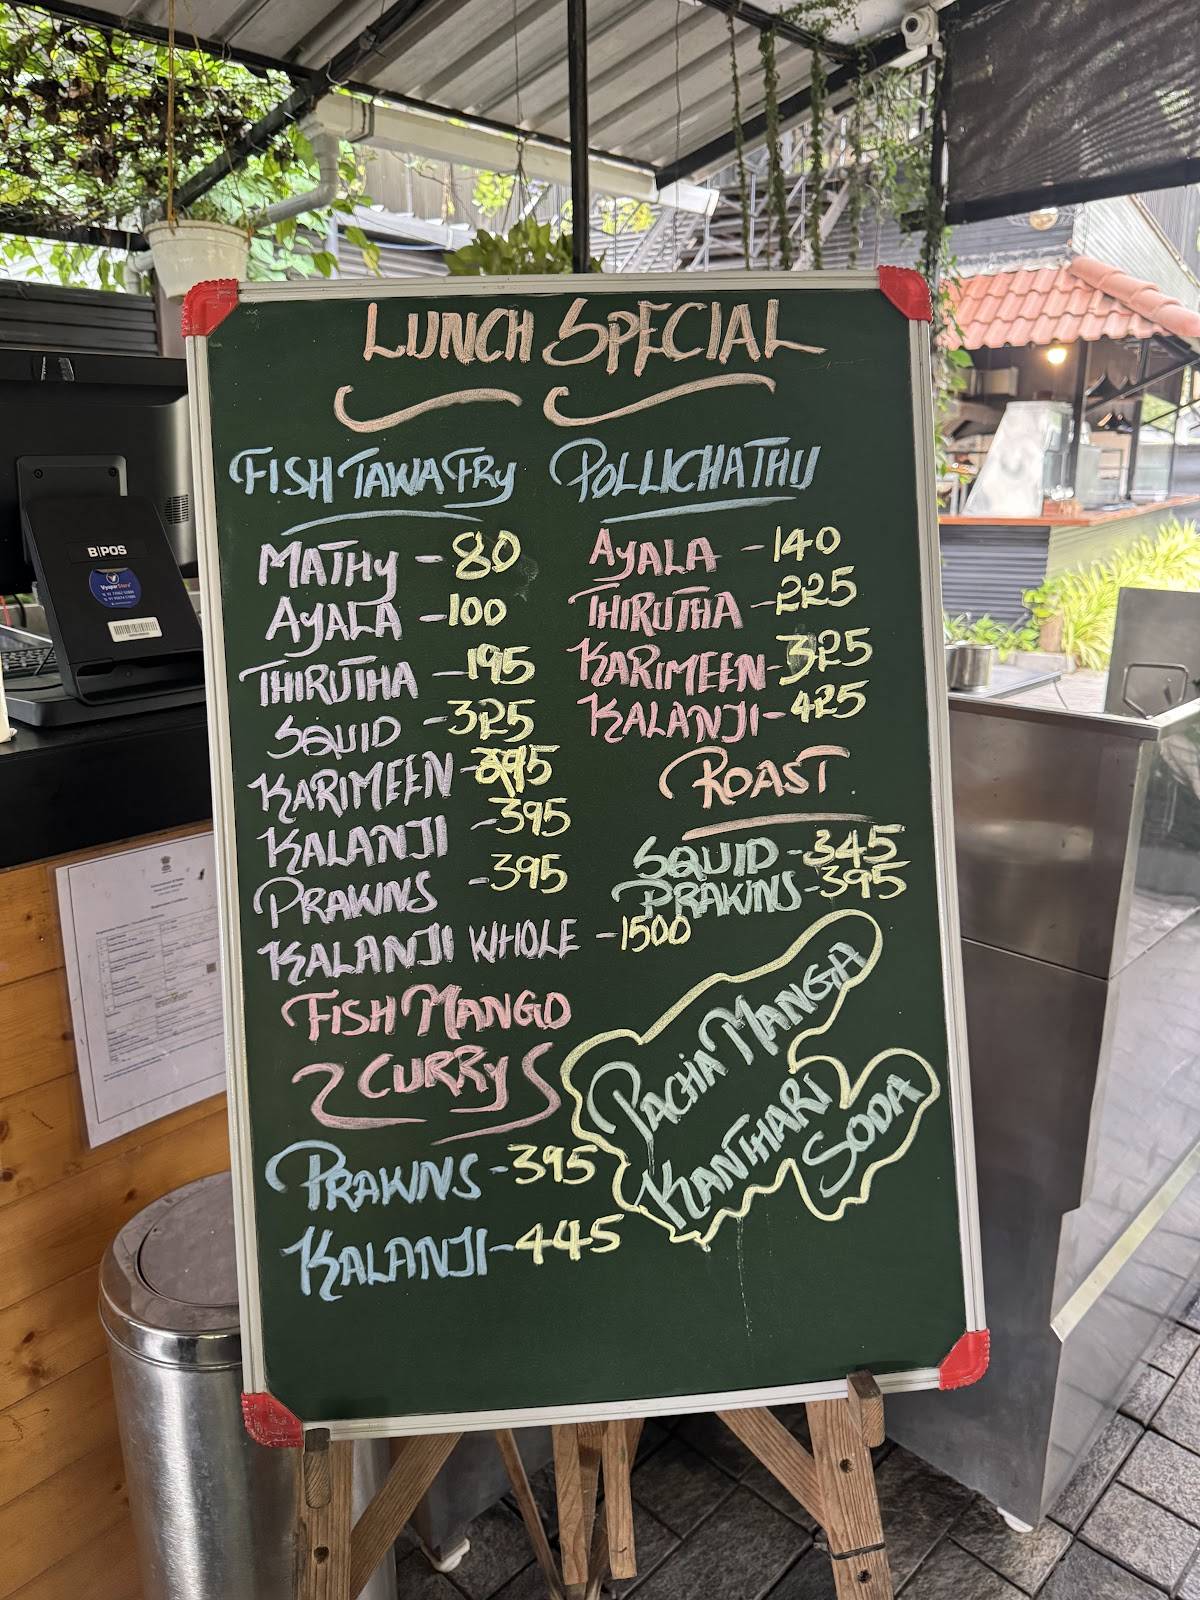 LUNCH SPECIAL
FISH TAWA FRY
MATHY - 80
AYALA - 100
THIRUTHA - 195
SQUID - 325
KARIMEEN - 295
KALANJI - 395
PRAWNS - 395
KALANJI WHOLE - 1500
FISH MANGO
CURRY
PRAWNS - 395
KALANJI - 445
POLLICHATHU
AYALA - 140
THIRUTHA - 225
KARIMEEN - 325
KALANJI - 425
ROAST
SQUID - 345
PRAWNS - 395
PACHA MANGA
KANTHARI
SODA
B|POS